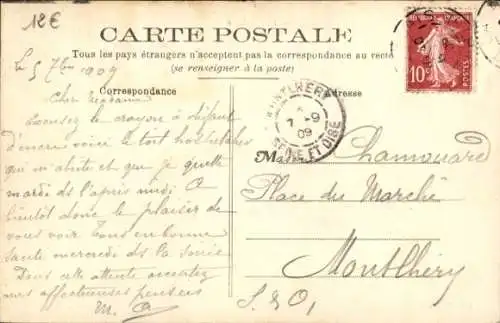 12€
CARTE POSTALE
Tous les pays étrangers n'acceptent pas la correspondance au recto
(se renseigner à la poste)
Correspondance
Adresse
Le 5 7bre 1909
Cher
Excusez le crayon à défaut
d'encre voici le toit hospitalier
qui m'abrite et que je quitte
mardi ds l'après midi A
bientôt donc le plaisir de
vous voir Tous en bonne
santé mercredi ds la soirée
Dans cette attente acceptez
mes affectueuses pensées
M.
MONTLHERY
7-9
09
SEINE ET OISE
REPUBLIQUE FRANÇAISE
10c
POSTES
Chamouard
Place du Marché
Montlhéry
S. & O.